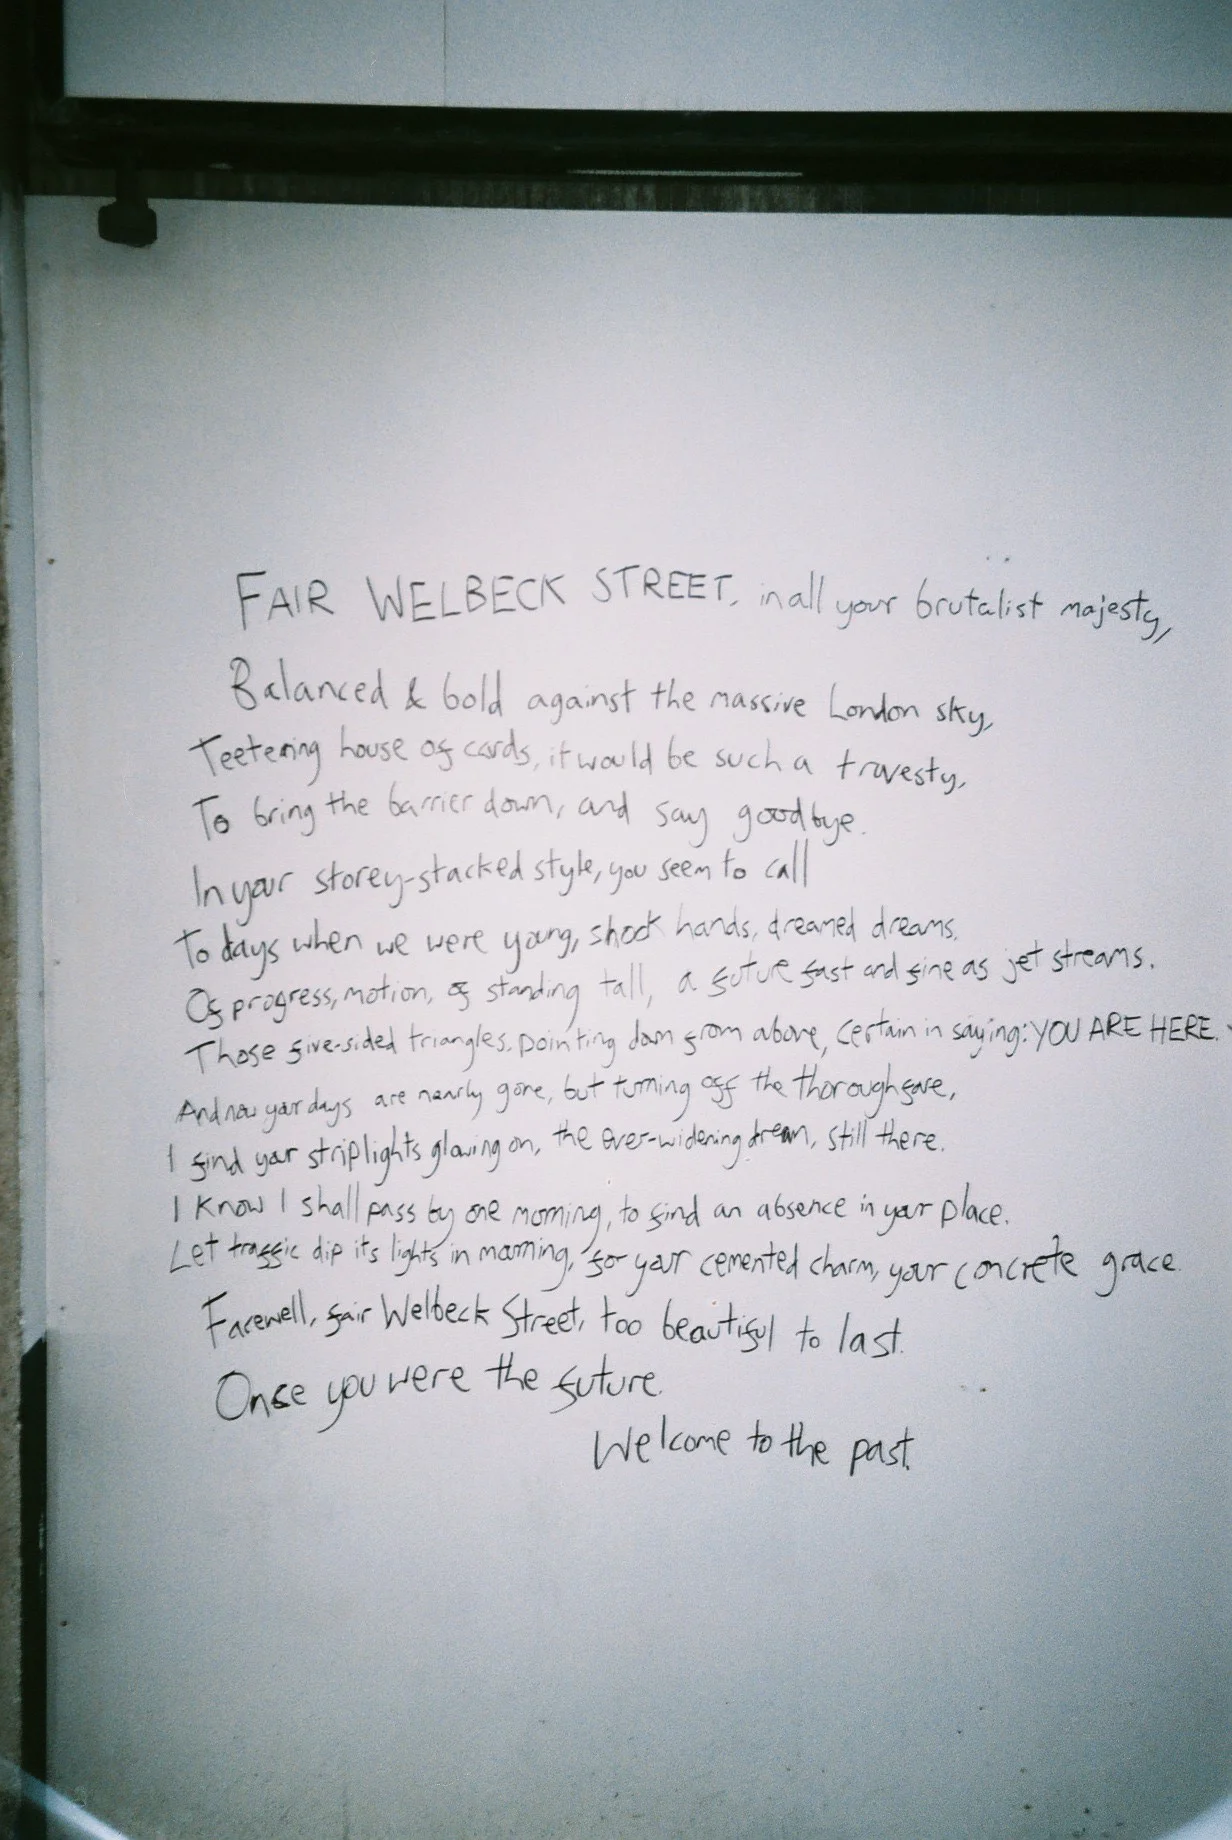 FAIR WELBECK STREET, in all your brutalist majesty,
Balanced & bold against the massive London sky,
Teetering house of cards, it would be such a travesty,
To bring the barrier down, and say goodbye.
In your storey-stacked style, you seem to call
To days when we were young, shook hands, dreamed dreams.
Of progress, motion, of standing tall, a future fast and fine as jet streams.
Those five-sided triangles, pointing down from above, certain in saying: YOU ARE HERE.
And now your days are nearly gone, but turning off the thoroughfare,
I find your striplights glowing on, the ever-widening dream, still there.
I know I shall pass by one morning, to find an absence in your place.
Let traffic dip its lights in mourning, for your cemented charm, your concrete grace.
Farewell, fair Welbeck Street, too beautiful to last.
Once you were the future.
Welcome to the past.